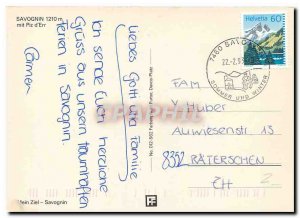 SAVOGNIN 1210 m
mit Piz d'Err
Liebes Gotti und Familie
Ich sende Euch herzliche
Grüsse aus unsern traumhaften
Ferien in Savognin.
Carmen
Mein Ziel – Savognin
Helvetia 60
7460 SAVOGNIN
SOMMER UND WINTER
FAM.
V. Huber
Auwiesenstr. 13
8352 RÄTERSCHEN
CH